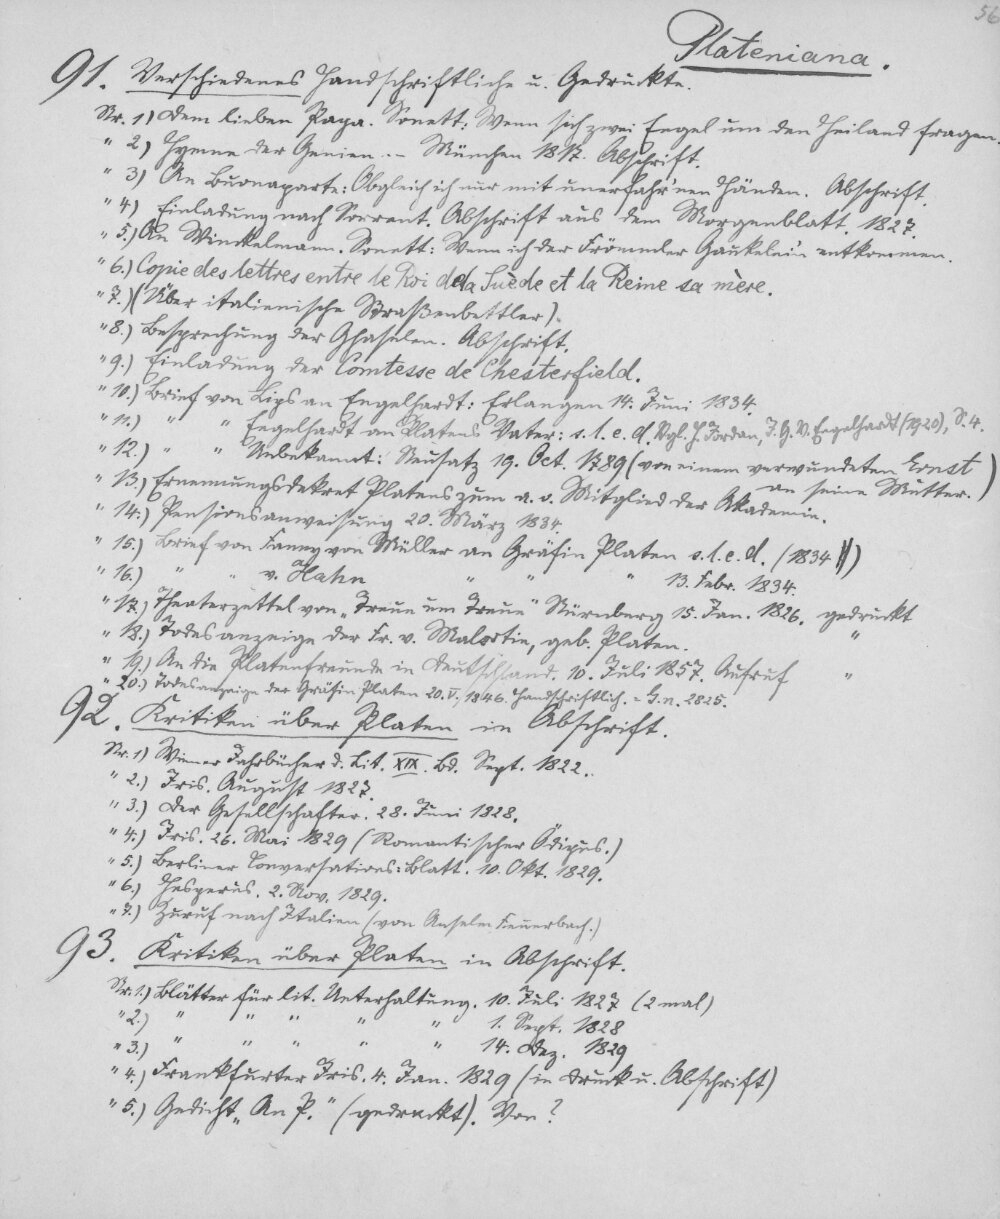 56
Plateniana.
91. Verschiedenes Handschriftliche u. Gedruckte.
Nr. 1) Dem lieben Papa. Sonett: Wenn sich zwei Engel um den Heiland fragen.
" 2) Hymne der Genien. – München 1817. Abschrift.
" 3) An Buonaparte: Obgleich ich nur mit unerfahr'nen Händen. Abschrift.
" 4) Einladung nach Sorrent. Abschrift aus dem Morgenblatt. 1827.
" 5.) An Winckelmann. Sonett: Wenn ich der Frömmler Gaukelein entkommen.
" 6.) Copie des lettres entre le Roi de la Suède et la Reine sa mère.
" 7.) (Über italienische Straßenbettler).
" 8.) Besprechung der Ghaselen. Abschrift.
" 9.) Einladung der Comtesse de Chesterfield.
" 10.) Brief von Lips an Engelhardt: Erlangen 14. Juni 1834.
" 11.) " " Engelhardt an Platens Vater: s. l. e. d. Vgl. H. Jordan, J. G. V. Engelhardt (1920), S. 4.
" 12.) " " Unbekannt: Neusatz 19. Oct. 1789 (von einem verwundeten Ernst
an seine Mutter.)
" 13.) Ernennungsdekret Platens zum a. o. Mitglied der Akademie.
" 14.) Pensionsanweisung 20. März 1834.
" 15.) Brief von Fanny von Müller an Gräfin Platen s. l. e. d. (1834)
" 16.) " " v. Hahn " " " 13. Febr. 1834.
" 17.) Theaterzettel von "Treue um Treue" Nürnberg 15. Jan. 1826. gedruckt
" 18.) Todesanzeige der Fr. v. Malortie, geb. Platen. "
" 19.) An die Platenfreunde in Deutschland. 10. Juli 1857. Aufruf "
" 20.) Todesanzeige der Gräfin Platen 20. V. 1846. Handschriftlich. = G. n. 2825.
92. Kritiken über Platen in Abschrift.
Nr. 1) Wiener Jahrbücher d. Lit. XIX. Bd. Sept. 1822.
" 2.) Iris. August 1827.
" 3.) Der Gesellschafter. 28. Juni 1828.
" 4.) Iris. 26. Mai 1829 (Romantischer Ödipus.)
" 5.) Berliner Conversations=Blatt. 10. Okt. 1829.
" 6.) Hesperus. 2. Nov. 1829.
" 7.) Zuruf nach Italien (von Anselm Feuerbach.)
93. Kritiken über Platen in Abschrift.
Nr. 1.) Blätter für lit. Unterhaltung. 10. Juli 1827 (2 mal)
" 2.) " " " " " 1. Sept. 1828
" 3.) " " " " " 14. Dez. 1829
" 4.) Frankfurter Iris. 4. Jan. 1829 (in Druck u. Abschrift)
" 5.) Gedicht "An P." (gedruckt). Von?